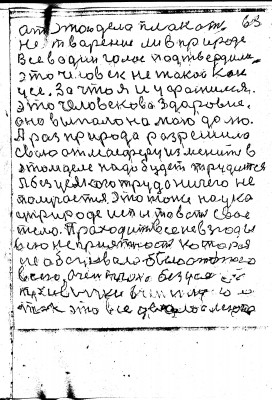 от этого дела плакать 63
не тварение ли в природе
Все водин голос подтвердили
это человек не такой как
усе. За что я и ухватился.
это человекова Здоровия.
оно выпало на маю долю.
А раз природа разрешила
Свою атмасферу изменить в
этом деле надо будет трудится
А без усякого труда ничего не
получается. Это тоже наука
у природе исп товать свое
тело. Праходить все невзгоды
всю неприятность которая
не обосновало было этого
всего, очень плохо без усей
привычки
так это все делалось